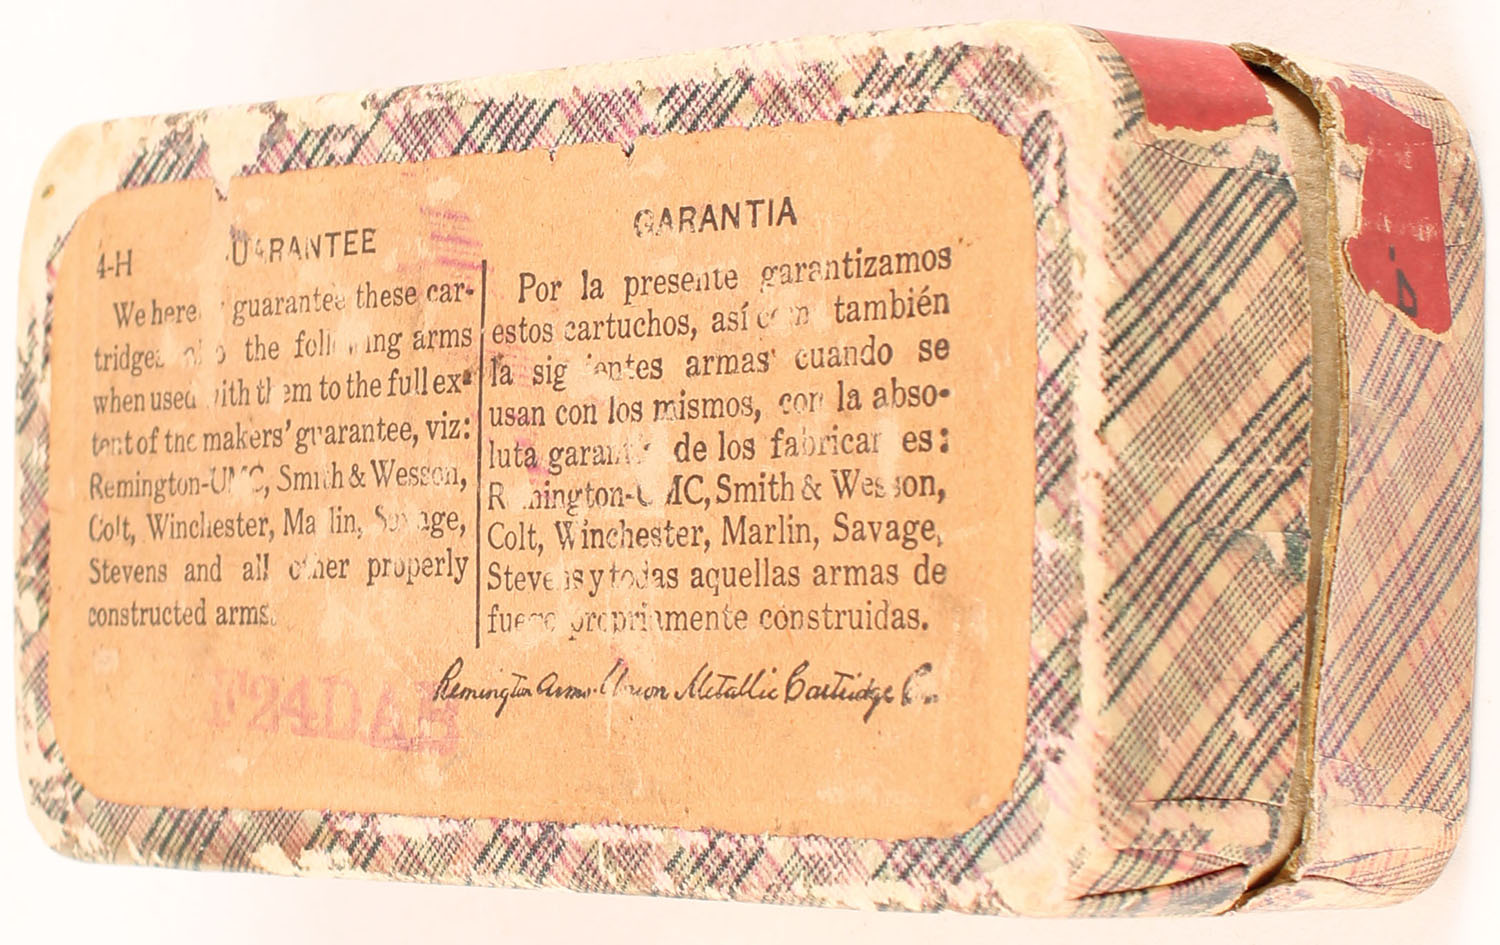 4-H
GUARANTEE
We here guarantee these car-
tridges also the following arms
when used with them to the full ex-
tent of the makers' guarantee, viz:
Remington-UMC, Smith & Wesson,
Colt, Winchester, Marlin, Savage,
Stevens and all other properly
constructed arms.
GARANTIA
Por la presente garantizamos
estos cartuchos, así com también
la sig ientes armas cuando se
usan con los mismos, con la abso-
luta garantía de los fabricantes:
Remington-UMC, Smith & Wesson,
Colt, Winchester, Marlin, Savage,
Stevens y todas aquellas armas de
fuego propriamente construidas.
Remington Arms-Union Metallic Cartridge Co.
F24DAB